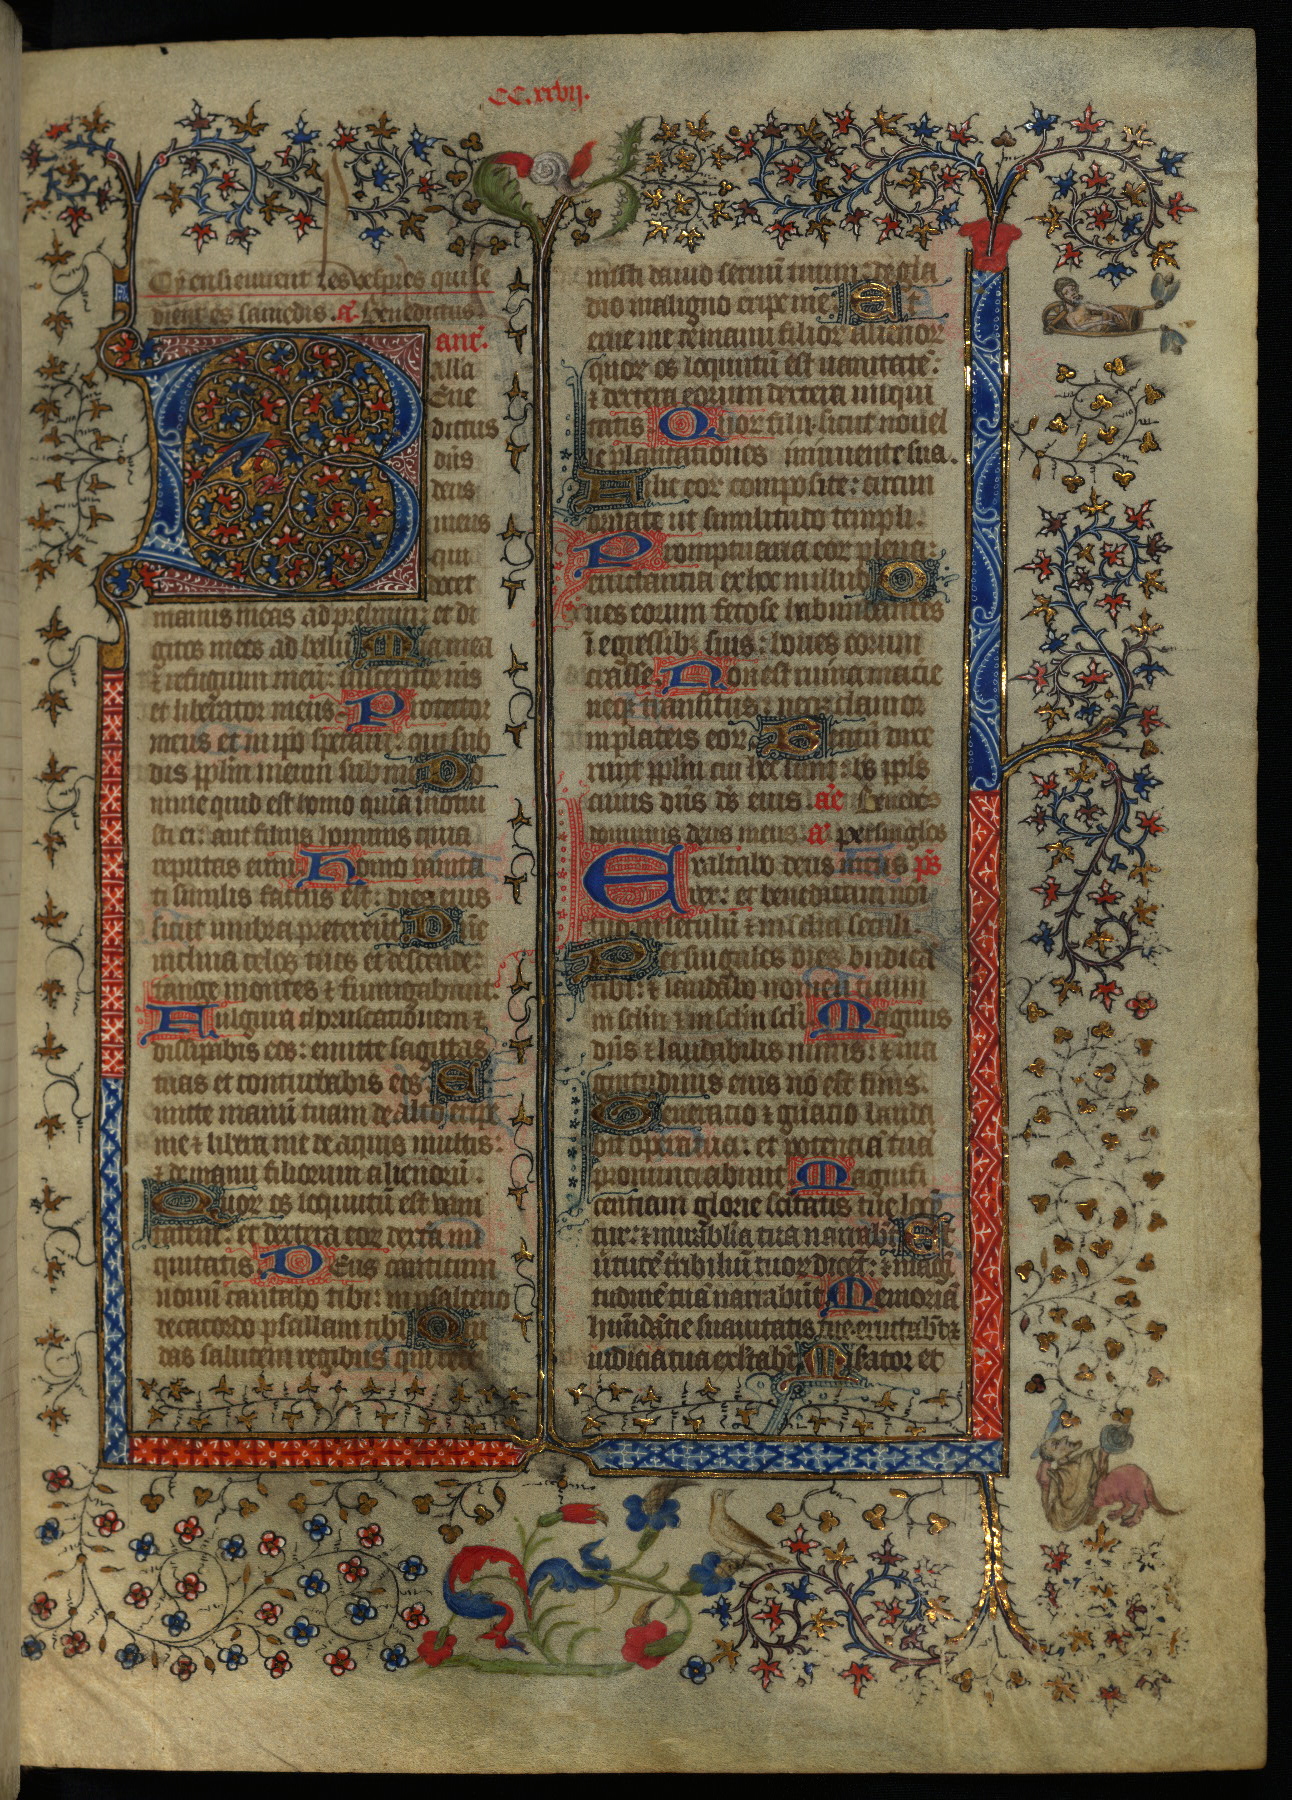 CC.xxvij.
Cy ensieuvent les vespres qui se
dient es samedis. a͞. Benedictus
ant͛.
alla
Ene
dictus
dn͞s
deus
meus
qui
docet
manus meas ad prelium: et di
gitos meos ad bellū Mia mea
et refugium meū: susceptor m͞s
et liberator meus Protector
meus et in ip͞o speraui: qui sub
dis pp͞lm meum sub me Do
mine quid est homo quia inotui
sti ei: aut filius hominis quia
reputas eum Homo vanita
ti similis factus est: dies eius
sicut umbra pretereūt Dn͞e
inclina celos tuos et descende:
tange montes ⁊ fumigabunt.
Fulgura choruscationem ⁊
dissipabis eos: emitte sagittas
tuas et conturbabis eos E
mitte manū tuam de alto eripe
me ⁊ libera me de aquis multis:
⁊ de manu filiorum alienorū.
Quor os locutū est vani
tatem: et dextera eor dextā ini
quitatis Deus canticum
nouū cantabo tibi: in psalterio
decacordo psallam tibi Qui
das salutem regibus qui rede
misti dauid seruū tuum: de gla
dio maligno eripe me: Et
erue me de manu filior alienor
quor os locutū est vanitatē:
⁊ dextera eorum dextera iniqui
tatis Quor filii: sicut nouel
le plantationes in iuuente sua.
Filie eor composite: circum
ornate ut similitudo templi.
Promptuaria eor plena:
eructantia ex hoc in illud O
ues eorum fetose habundantes
ī egressib: suis: boues eorum
crasse. Non est ruina macerie
neq͛ transitus: neq͛ clamor
in plateis eor. Beatū dixe
runt pp͞lm cui hec sunt: bt͞s pp͞ls
cuius dn͞s d͞s eius. a͞e Benedc͞s
dominus deus meus. a͞e per singlos
Exaltabo te deus meus p͞s
rex: et benedicam noi
tuo in seculū ⁊ in sclm̄ seculi.
Per singulos dies bn̄dicā
tibi: ⁊ laudabo nomen tuum
in sclm̄ ⁊ in sclm̄ scli Magnus
dn͞s ⁊ laudabilis nimis: ⁊ ma
gnitudinis eius nō est finis.
Generatio ⁊ gn̄atio lauda
bit opera tua: et potentiā tuā
pronunciabunt Magnifi
centiam glorie scitatis tue loq͞n
tur: ⁊ mirabilia tua narrabt̄ Et
v̄tutē tribiliū tuor dicet: ⁊ mag
tudinē tuā narrabūt Memoriā
habūdātie suauitatis tue eructabt̄ ⁊
iudicia tua exl̄tabt̄ Mis̄ator et